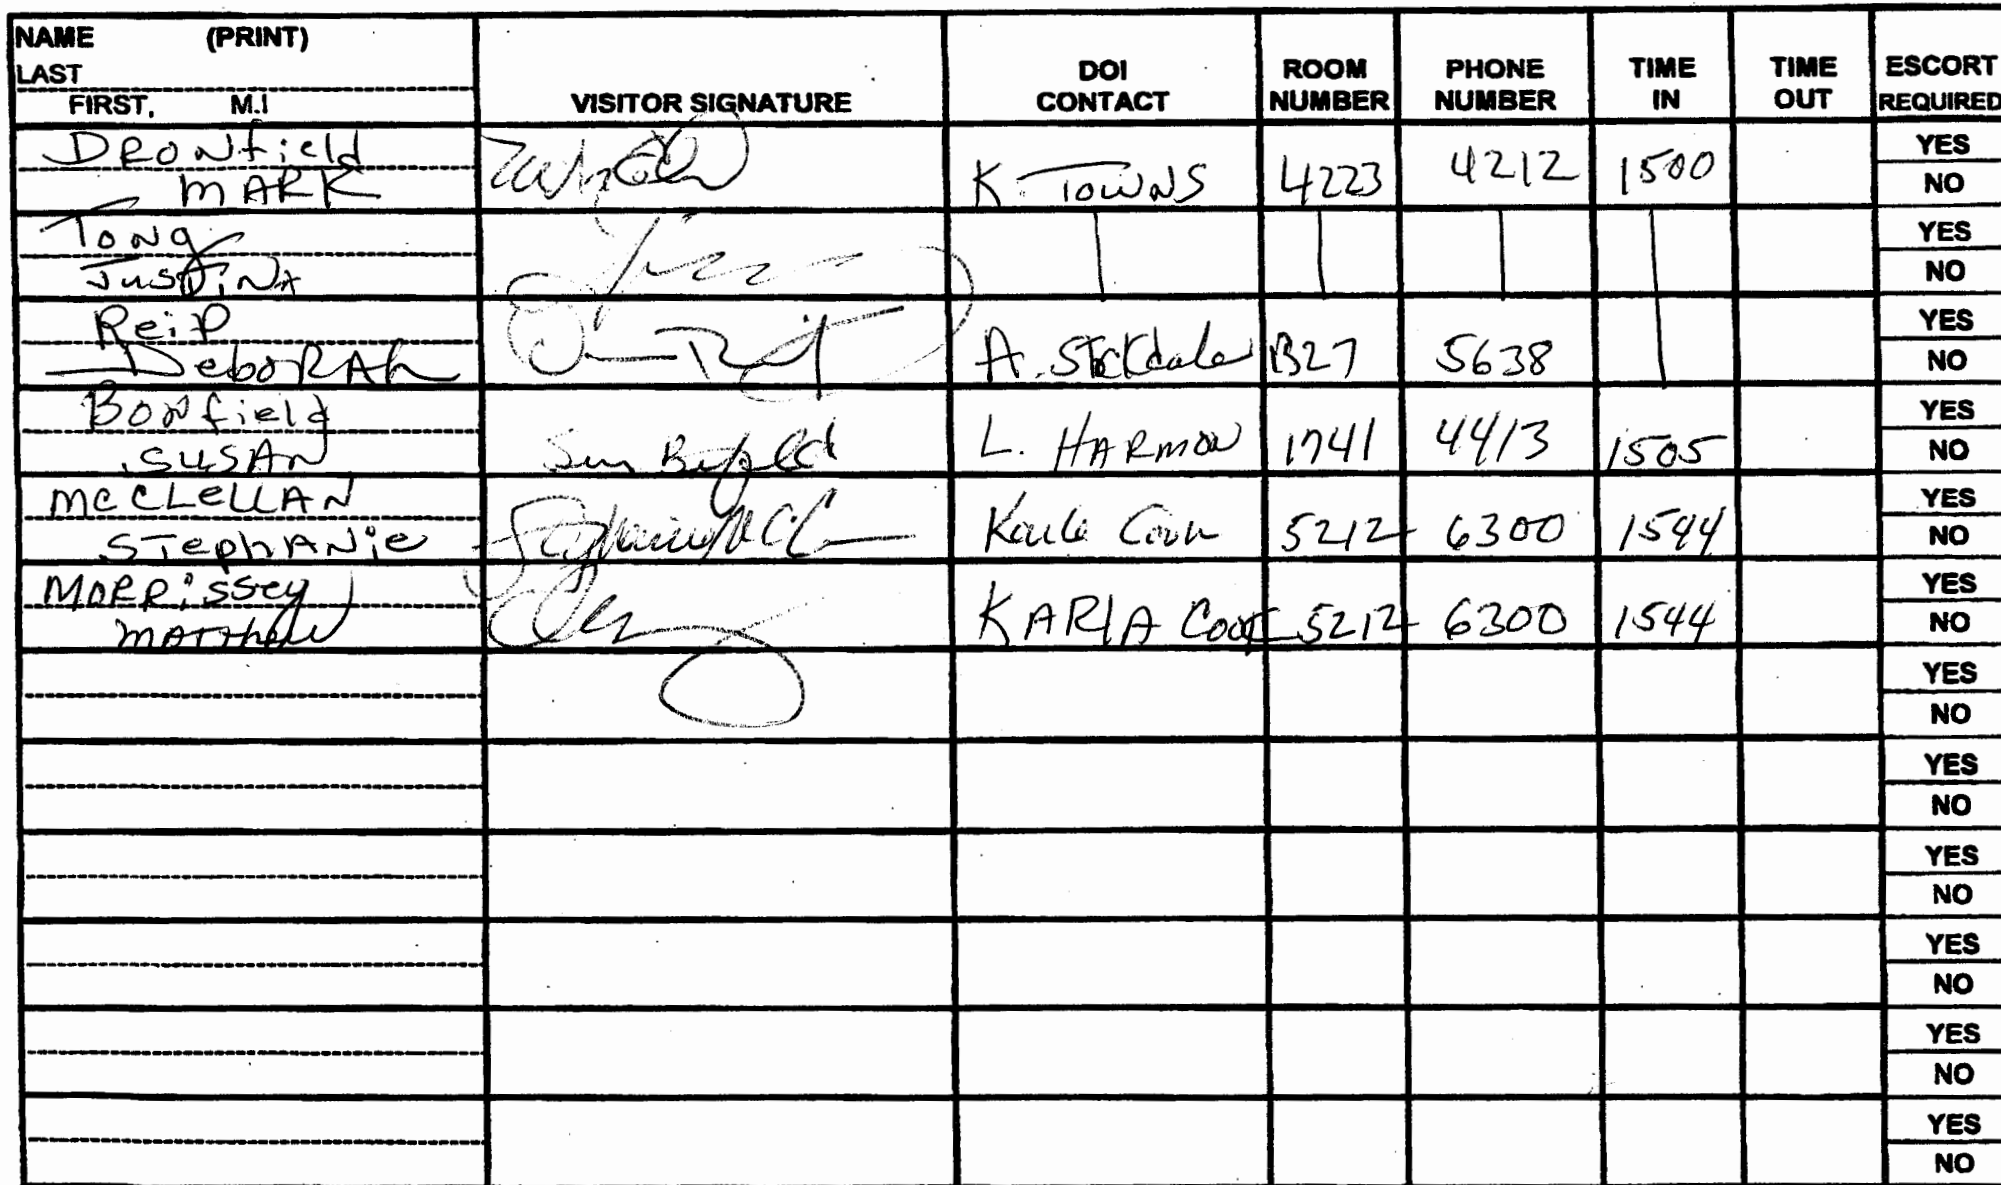 NAME (PRINT)
LAST
FIRST, M.I
VISITOR SIGNATURE
DOI CONTACT
ROOM NUMBER
PHONE NUMBER
TIME IN
TIME OUT
ESCORT REQUIRED
DRONfield
MARK
K. TOWNS 4223 4212 1500
YES
NO
Tong
JUSTINA
YES
NO
ReiD
DeboRAh
A. Stockdale B27 5638
YES
NO
BONfield
SUSAN
L. HARMON 1741 4413 1505
YES
NO
McCLeLLAN
STephANie
5212 6300 1544
YES
NO
MORRissey
MATThew
KARLA Cook 5212 6300 1544
YES
NO
YES
NO
YES
NO
YES
NO
YES
NO
YES
NO
YES
NO